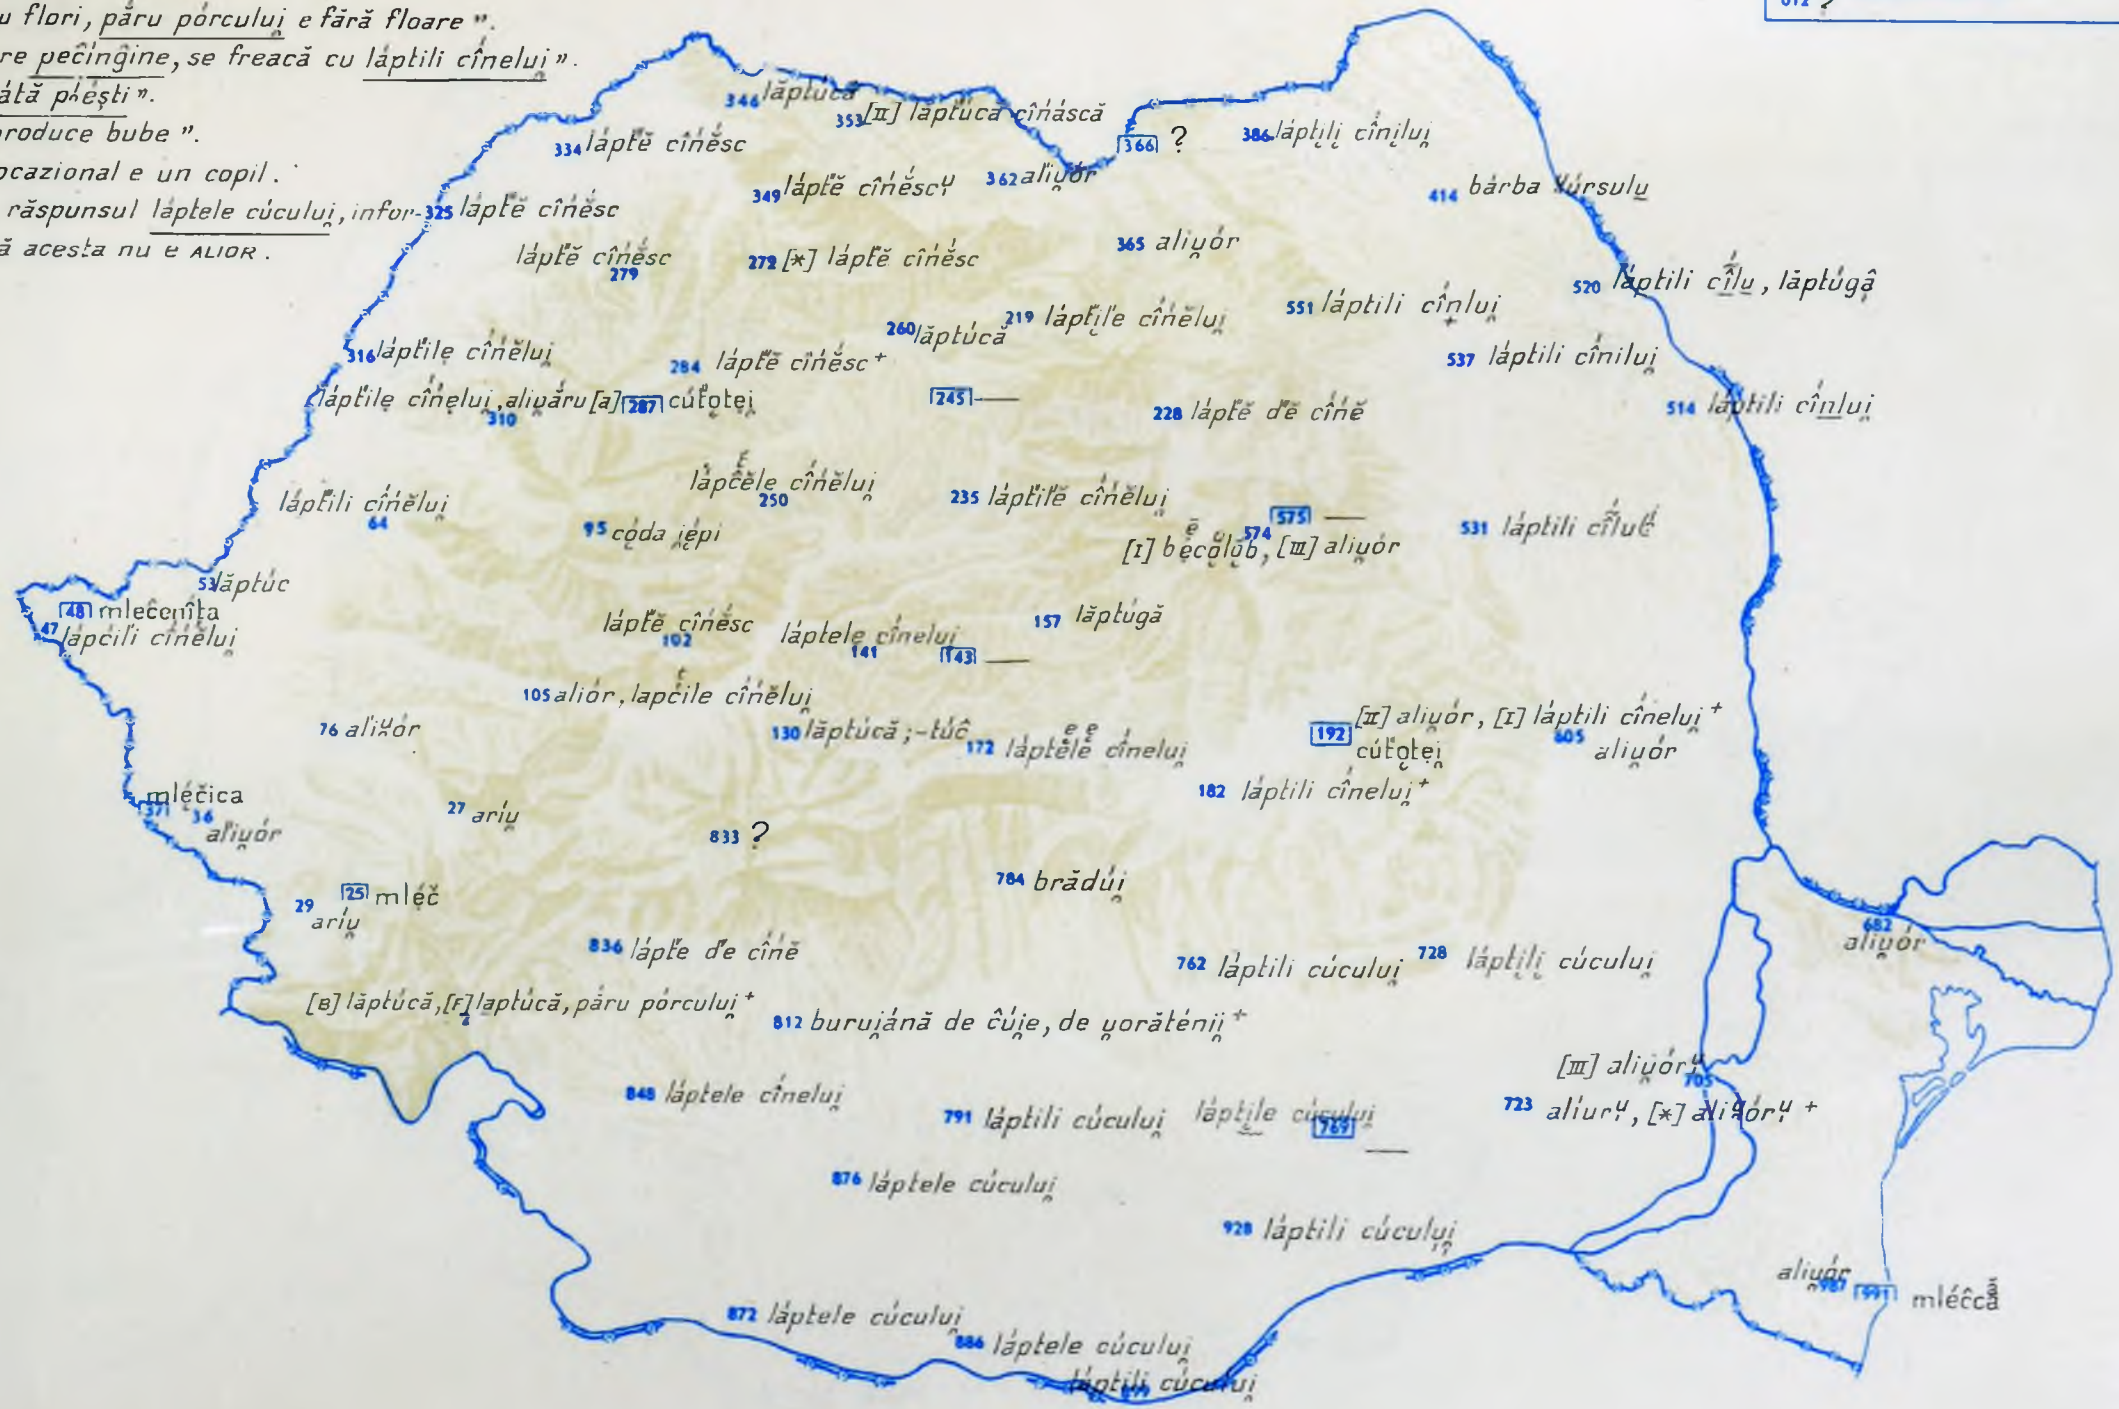 u flori, păru pórcului̯ e fără floare ".
re pecíngine, se freacă cu láptili cî́nelui̯ ".
átă plești ".
produce bube ".
ocazional e un copil.
răspunsul láptele cúcului̯, infor-
ă acesta nu e ALIOR.
612 ?
346 lăptúcă
353 [II] lăptúcă cîńáscă
334 lápt́ĕ cîńésc
366 ?
386 láptili̯ cî́nilui̯
349 lápt́ĕ cîńéscᶸ
362 aliu̯ór
414 bárba úrsulu
325 lápt́ĕ cîńésc
365 aliu̯ór
lápt́ĕ cîńésc
279
272 [*] lápt́ĕ cîńésc
520 láptili cî́lu, lăptúgă
551 láptili cî́nlui̯
260 lăptúcă
219 lápt́iľe cî́ńĕlui̯
316 lápt́ile cî́ńĕlui̯
284 lápt́ĕ cîńésc +
537 láptili cî́nilui̯
lápt́ile cî́ńelui̯, aliu̯áru [a]
310
287 cút́otei̯
245 —
228 lápt́ĕ d́ĕ cî́ńĕ
514 láptili cî́nlui̯
lápt́ili cî́ńĕlui̯
64
lápĉĕle cî́ńĕlui̯
250
235 lápt́iľĕ cî́ńĕlui̯
95 códa i̯épi
574
575 —
[I] bécolób, [III] aliu̯ór
531 láptili cî́lui̯
53 lăptúc
48 mleĉeníta
47 lápĉiľi cî́ńĕlui̯
lápt́ĕ cîńésc
102
láptele cî́nelui̯
141
143 —
157 lăptúgă
105 aliór, lapĉile cî́ńĕlui̯
76 aľiu̯ór
130 lăptúcă; -túĉ
172 láptĕlĕ cî́nelui̯
192 cút́otei̯
[II] aliu̯ór, [I] láptili cî́nelui̯ +
605
aliu̯ór
182 láptili cî́nelui̯ +
37 mléčica
36
aľiu̯ór
27 aríu̯
833 ?
784 brădúi̯
29
aríu̯
25 mléč
836 lápt́e d́e cî́ńĕ
762 láptili cúcului̯
728 láptili̯ cúcului̯
682
aliu̯ór
[B] lăptúcă, [F] laptúcă, păru pórcului̯ +
2
812 burui̯ánă de ĉúi̯e, de u̯orăténii̯ +
[III] aliu̯órᶸ
705
848 láptele cî́nelui̯
791 láptili cúcului̯
láptile cúcului̯
769 —
723 alíurᶸ, [*] aliu̯órᶸ +
876 láptele cúcului̯
928 láptili cúcului̯
aliu̯ór
987
991 mléĉcă
872 láptele cúcului̯
886 láptele cúcului̯
láptili cúcului